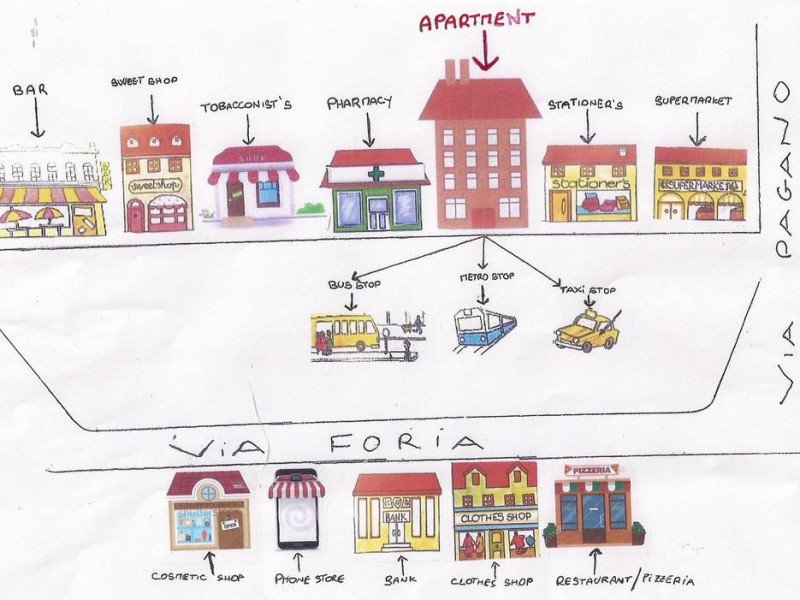 APARTMENT
BAR
SWEET SHOP
TOBACCONIST'S
PHARMACY
STATIONER'S
SUPERMARKET
sweetshop
SHOP
stationer's
SUPERMARKET
VIA PAGANO
BUS STOP
METRO STOP
TAXI STOP
VIA FORIA
PIZZERIA
shutterstock
OPEN
BANK
CLOTHES SHOP
COSMETIC SHOP
PHONE STORE
BANK
CLOTHES SHOP
RESTAURANT/PIZZERIA